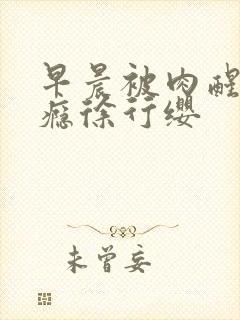 早晨被肉醒
瘾徐行缨
未曾妄